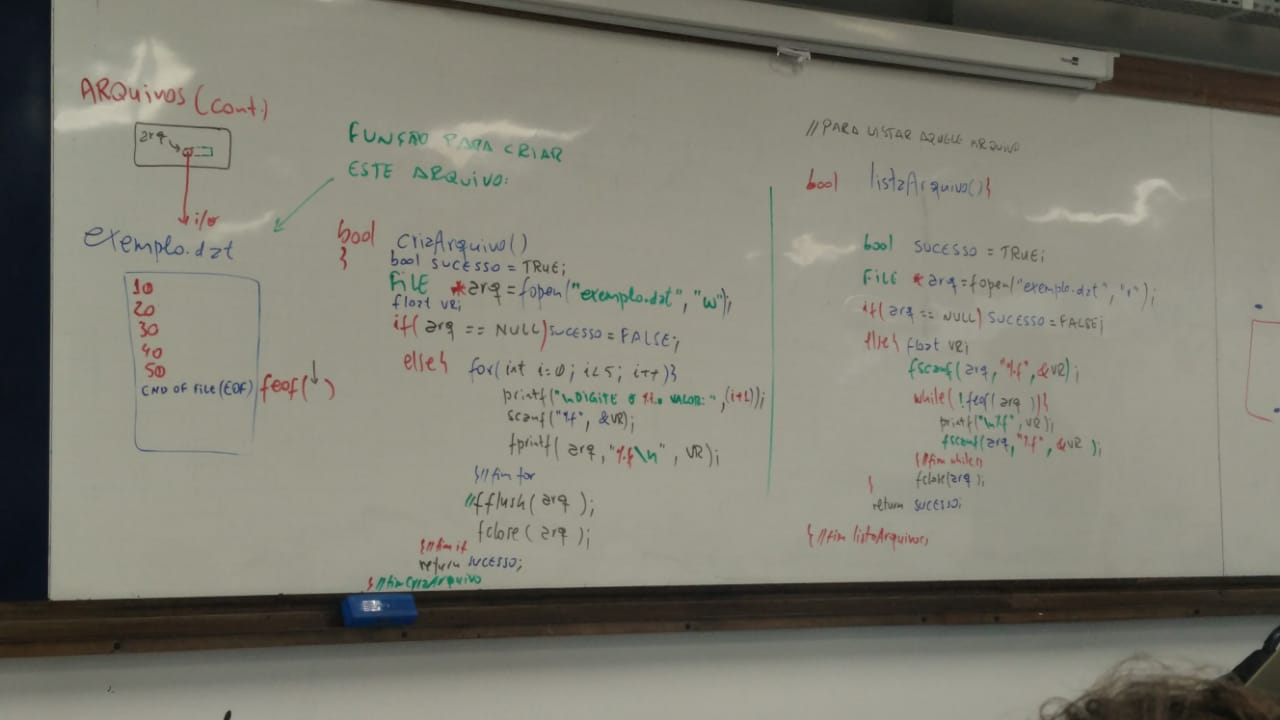 ARQUIVOS (cont.)
arq
i/o
exemplo.dat
10
20
30
40
50
END OF FILE (EOF)
feof( )
FUNÇÃO PARA CRIAR
ESTE ARQUIVO:
bool criaArquivo()
{
bool SUCESSO = TRUE;
FILE *arq = fopen("exemplo.dat", "w");
float VR;
if( arq == NULL) SUCESSO = FALSE;
else{ for( int i=0; i<5; i++){
printf("\nDIGITE O %.o VALOR: ", (i+1));
scanf("%f", &VR);
fprintf( arq, "%f\n", VR);
}//fim for
//fflush( arq );
fclose( arq );
}//fim if
return SUCESSO;
}//fim criaArquivo
//PARA LISTAR AQUELE ARQUIVO
bool listaArquivo(){
bool SUCESSO = TRUE;
FILE *arq = fopen("exemplo.dat", "r");
if( arq == NULL) SUCESSO = FALSE;
else{ float VR;
fscanf( arq, "%f", &VR);
while( !feof( arq )){
printf("\n%f", VR);
fscanf(arq, "%f", &VR );
}//fim while
fclose(arq );
}
return SUCESSO;
}//fim listaArquivo